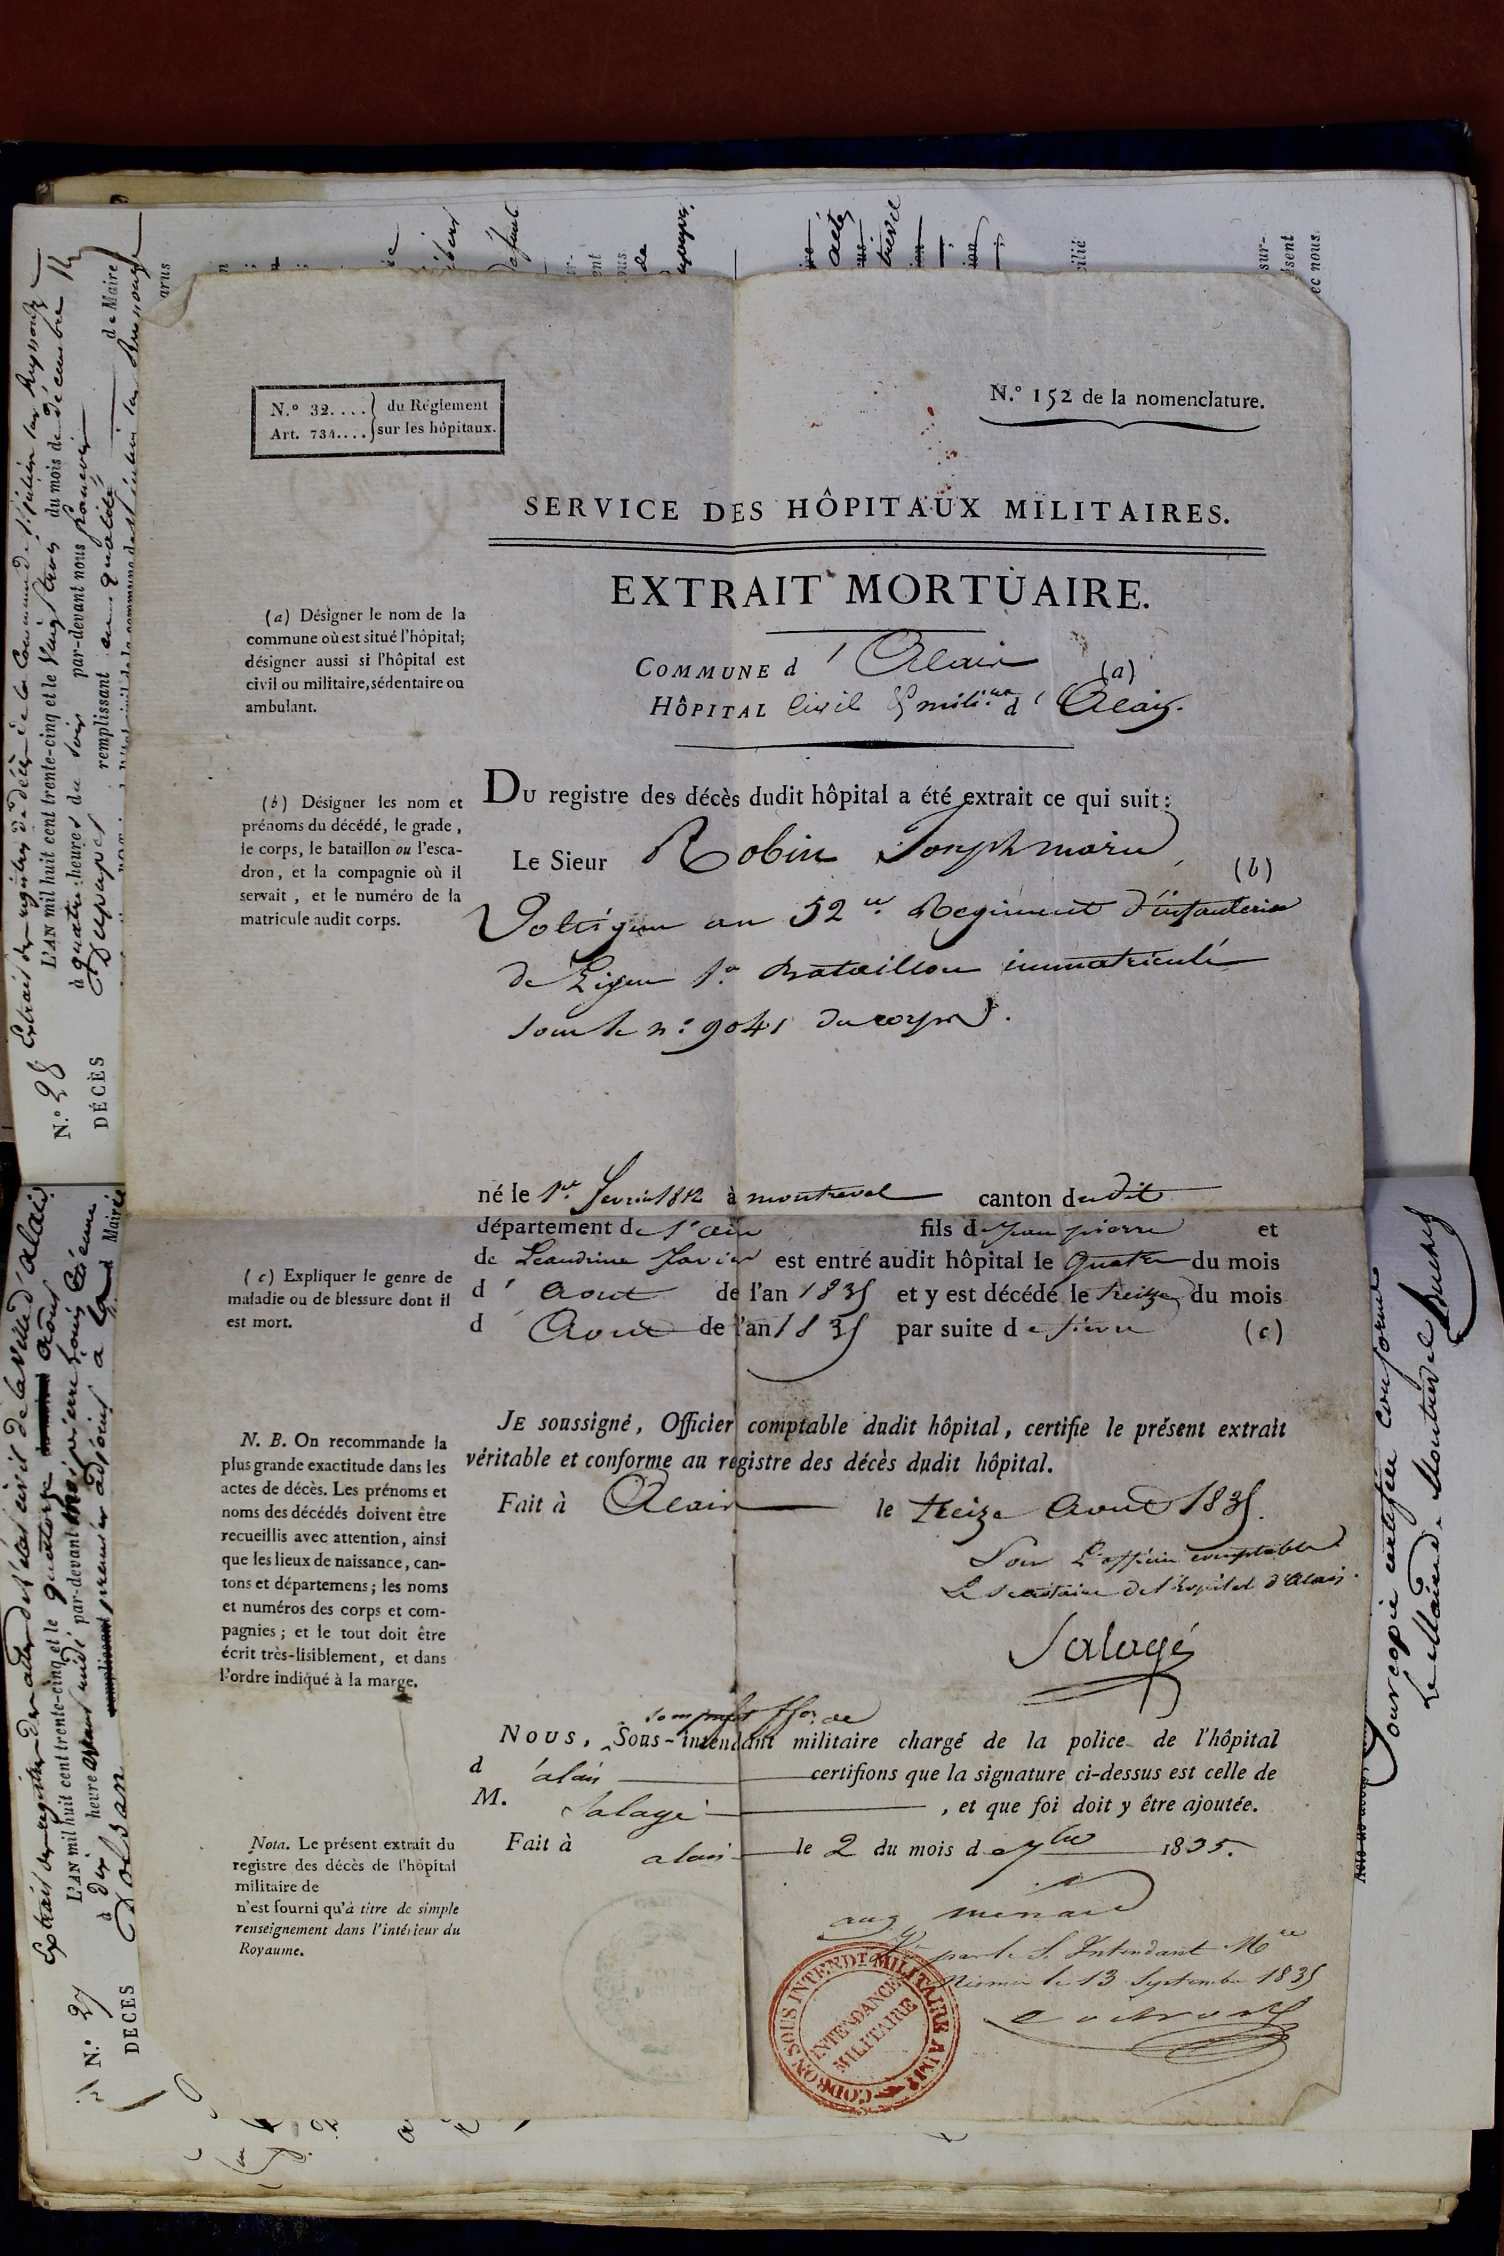 N.° 32.... du Réglement
Art. 734.... sur les hôpitaux.
N.° 152 de la nomenclature.
SERVICE DES HÔPITAUX MILITAIRES.
EXTRAIT MORTUAIRE.
COMMUNE d'Alais (a)
HÔPITAL Civil & milit.re d'Alais.
(a) Désigner le nom de la
commune où est situé l'hôpital;
désigner aussi si l'hôpital est
civil ou militaire, sédentaire ou
ambulant.
DU registre des décès dudit hôpital a été extrait ce qui suit:
(b) Désigner les nom et
prénoms du décédé, le grade,
le corps, le bataillon ou l'esca-
dron, et la compagnie où il
servait, et le numéro de la
matricule audit corps.
Le Sieur Robin Joseph marie, (b)
Voltigeur au 52e. Regiment d'infanterie
de Ligne 1er Bataillon immatriculé
sous le n.° 9041 du corps.
né le 1er. fevrier 1812 à montrevel canton dudit
département de l'ain fils de Jean pierre et
de Leandrine est entré audit hôpital le Quatre du mois
d'Aout de l'an 1835 et y est décédé le treize du mois
d'Aout de l'an 1835 par suite de fievre (c)
(c) Expliquer le genre de
maladie ou de blessure dont il
est mort.
JE soussigné, Officier comptable dudit hôpital, certifie le présent extrait
véritable et conforme au registre des décès dudit hôpital.
Fait à Alais le treize Aout 1835.
N. B. On recommande la
plus grande exactitude dans les
actes de décès. Les prénoms et
noms des décédés doivent être
recueillis avec attention, ainsi
que les lieux de naissance, can-
tons et départemens; les noms
et numéros des corps et com-
pagnies; et le tout doit être
écrit très-lisiblement, et dans
l'ordre indiqué à la marge.
Pour L'officier comptable
Le Secretaire de l'hopital d'Alais.
Salagé
NOUS, Sous-intendant militaire chargé de la police de l'hôpital
d'alais certifions que la signature ci-dessus est celle de
M. Salagé, et que foi doit y être ajoutée.
Fait à alais le 2 du mois de 7bre 1835.
Nota. Le présent extrait du
registre des décès de l'hôpital
militaire de
n'est fourni qu'à titre de simple
renseignement dans l'intérieur du
Royaume.
par le S. Intendant Mre
Nismes le 13 Septembre 1835
CODRON SOUS INTENDT MILITAIRE ADJ
INTENDANCE
MILITAIRE
N.° 28
DÉCÈS
Extrait des registres de décès de la Commune de St julien sur Reyssouze
L'AN mil huit cent trente-cinq et le Vingt trois du mois de décembre
à quatre heures du soir par-devant nous
remplissant en qualité de Maire
N.° 27
DECES
Extrait des registres des actes de l'état civil de la Ville d'alais
L'AN mil huit cent trente-cinq et le quatorze aout
à dix heure avant midi par-devant
premier adjoint
Pour copie certifiée conforme
Le Maire de Montrevel